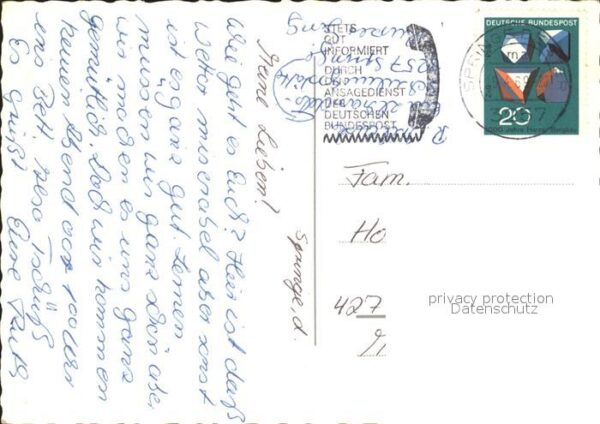 STETS
GUT
INFORMIERT
DURCH
ANSAGEDIENST
DER
DEUTSCHEN
BUNDESPOST
DEUTSCHE BUNDESPOST
20
1000 Jahre Harzer Bergbau
SPRINGE
Springe, d.
Meine Lieben!
Wie geht es Euch? Hier ist das
Wetter miserabel aber sonst
ist es ganz gut. Lernen
müssen wir ganz schön aber
wir machen es uns ganz
gemütlich. Doch wir kommen
keinen Abend vor 100 Uhr
ins Bett. Also Tschüß
Es grüßt Eure
3257 Springe
Fam.
Ho
427
privacy protection
Datenschutz